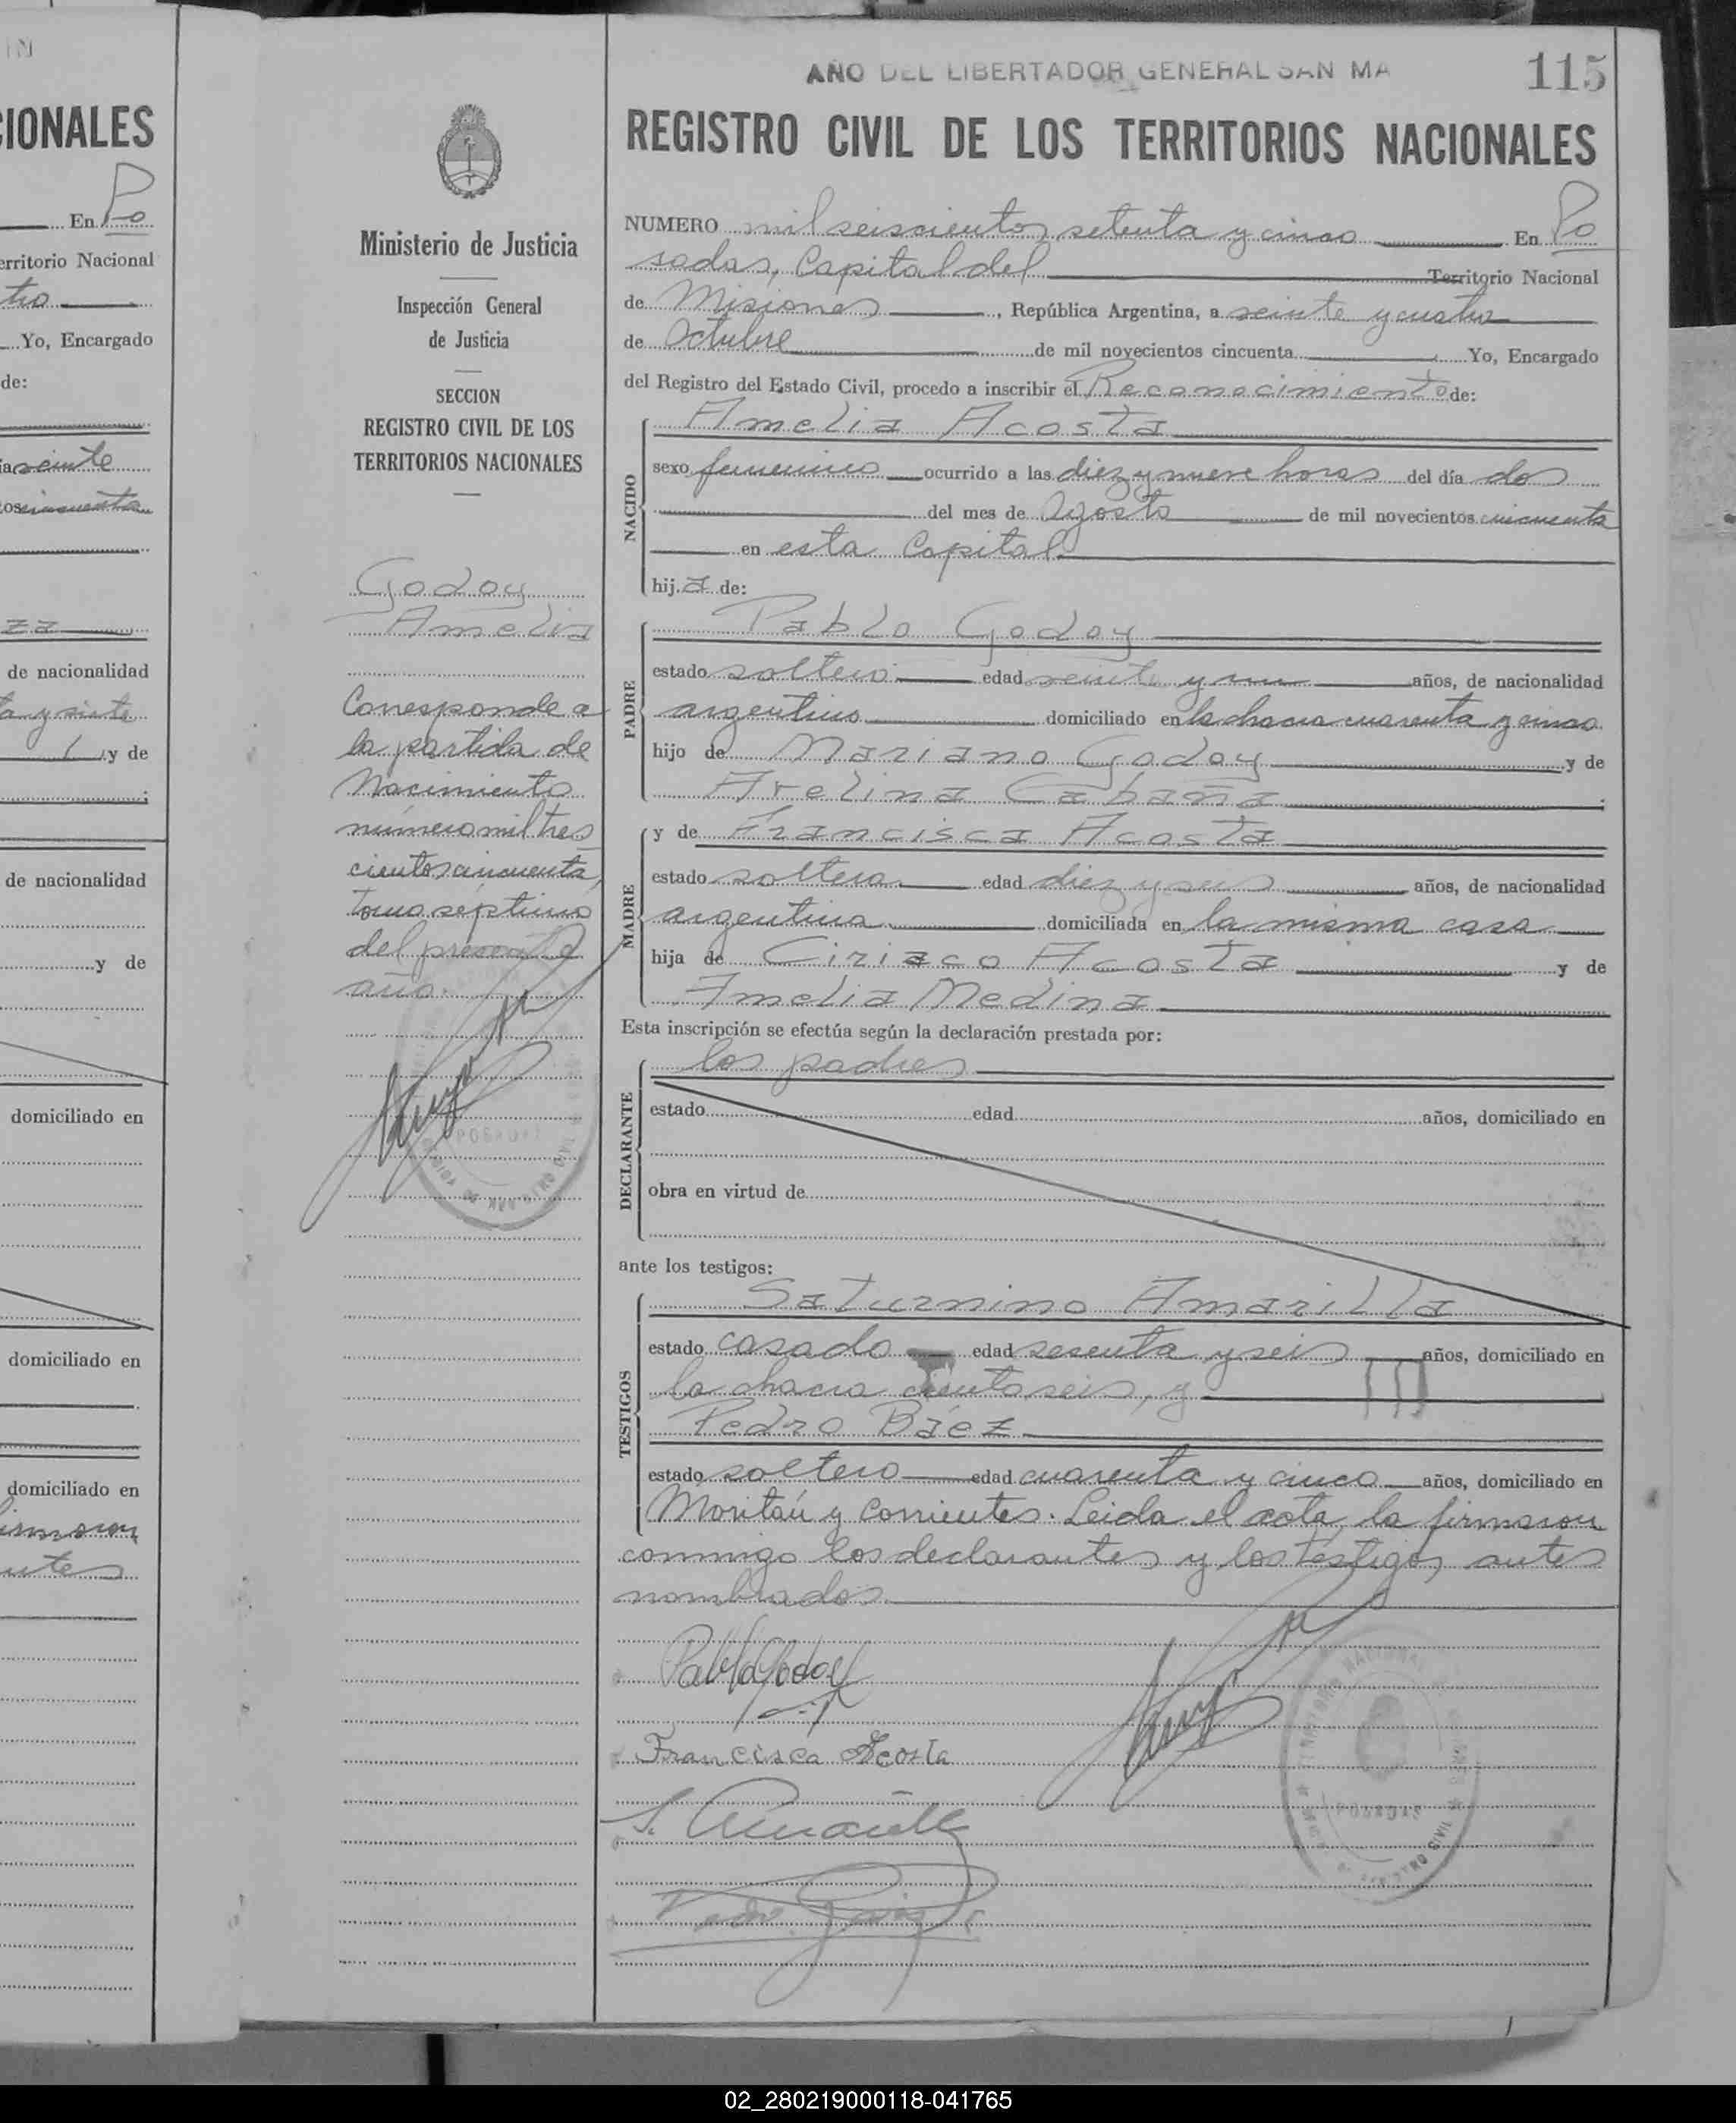 IN
CIONALES
En Po
erritorio Nacional
tro
Yo, Encargado
de:
ia veinte
os cincuenta
zz
de nacionalidad
ta y siete
y de
de nacionalidad
y de
domiciliado en
domiciliado en
domiciliado en
firmaron
antes
Ministerio de Justicia
Inspección General
de Justicia
SECCION
REGISTRO CIVIL DE LOS
TERRITORIOS NACIONALES
Godoy
Amelia
Corresponde a
la partida de
Nacimiento
número mil tres
cientos cincuenta,
tomo séptimo
del presente
año.
AÑO DEL LIBERTADOR GENERAL SAN MA
115
REGISTRO CIVIL DE LOS TERRITORIOS NACIONALES
NUMERO mil seiscientos setenta y cinco En Po
sadas, Capital del Territorio Nacional
de Misiones, República Argentina, a veinte y cuatro
de Octubre de mil novecientos cincuenta Yo, Encargado
del Registro del Estado Civil, procedo a inscribir el Reconocimiento de:
NACIDO
Amelia Acosta
sexo femenino ocurrido a las diez y nueve horas del día dos
del mes de Agosto de mil novecientos cincuenta
en esta Capital
hij a de:
PADRE
Pablo Godoy
estado soltero edad veinte y un años, de nacionalidad
argentino domiciliado en la chacra cuarenta y cinco
hijo de Mariano Godoy y de
Avelina Cabaña
MADRE
y de Francisca Acosta
estado soltera edad diez y seis años, de nacionalidad
argentina domiciliada en la misma casa
hija de Ciriaco Acosta y de
Amelia Medina
Esta inscripción se efectúa según la declaración prestada por:
DECLARANTE
los padres
estado edad años, domiciliado en
obra en virtud de
ante los testigos:
TESTIGOS
Saturnino Amarilla
estado casado edad sesenta y seis años, domiciliado en
la chacra ciento seis, y
Pedro Báez
estado soltero edad cuarenta y cinco años, domiciliado en
Moritán y Corrientes. Leida el acta, la firmaron
conmigo los declarantes y los testigos antes
nombrados.
Pablo Godoy
Francisca Acosta
S. Amarilla
POSADAS
02_280219000118-041765